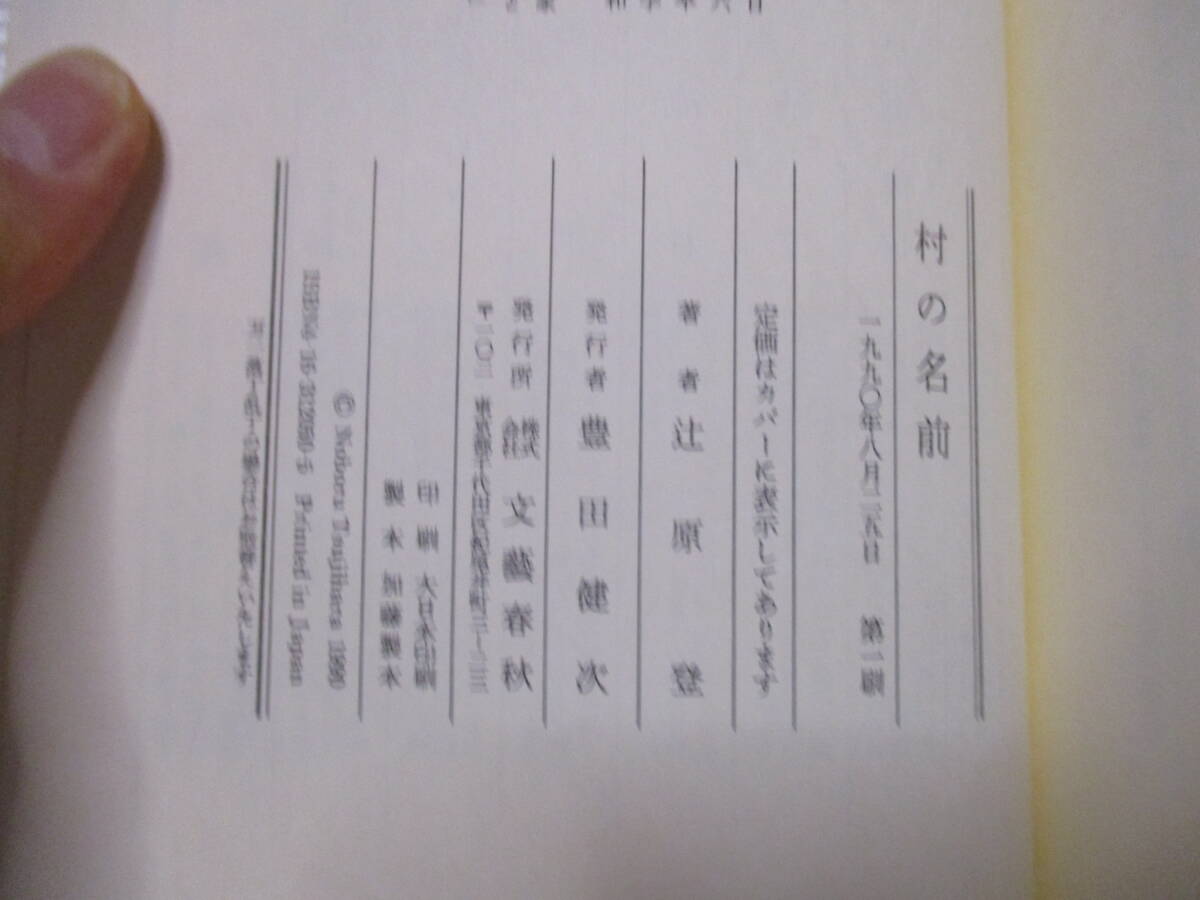 村の名前
一九九〇年八月二五日 第一刷
定価はカバーに表示してあります
著者 辻原 登
発行者 豊田健次
発行所 株式会社 文藝春秋
〒一〇二 東京都千代田区紀尾井町三—二三
印刷 大日本印刷
製本 加藤製本
© Noboru Tsujihara 1990
Printed in Japan
万一落丁・乱丁の場合はお取替えいたします